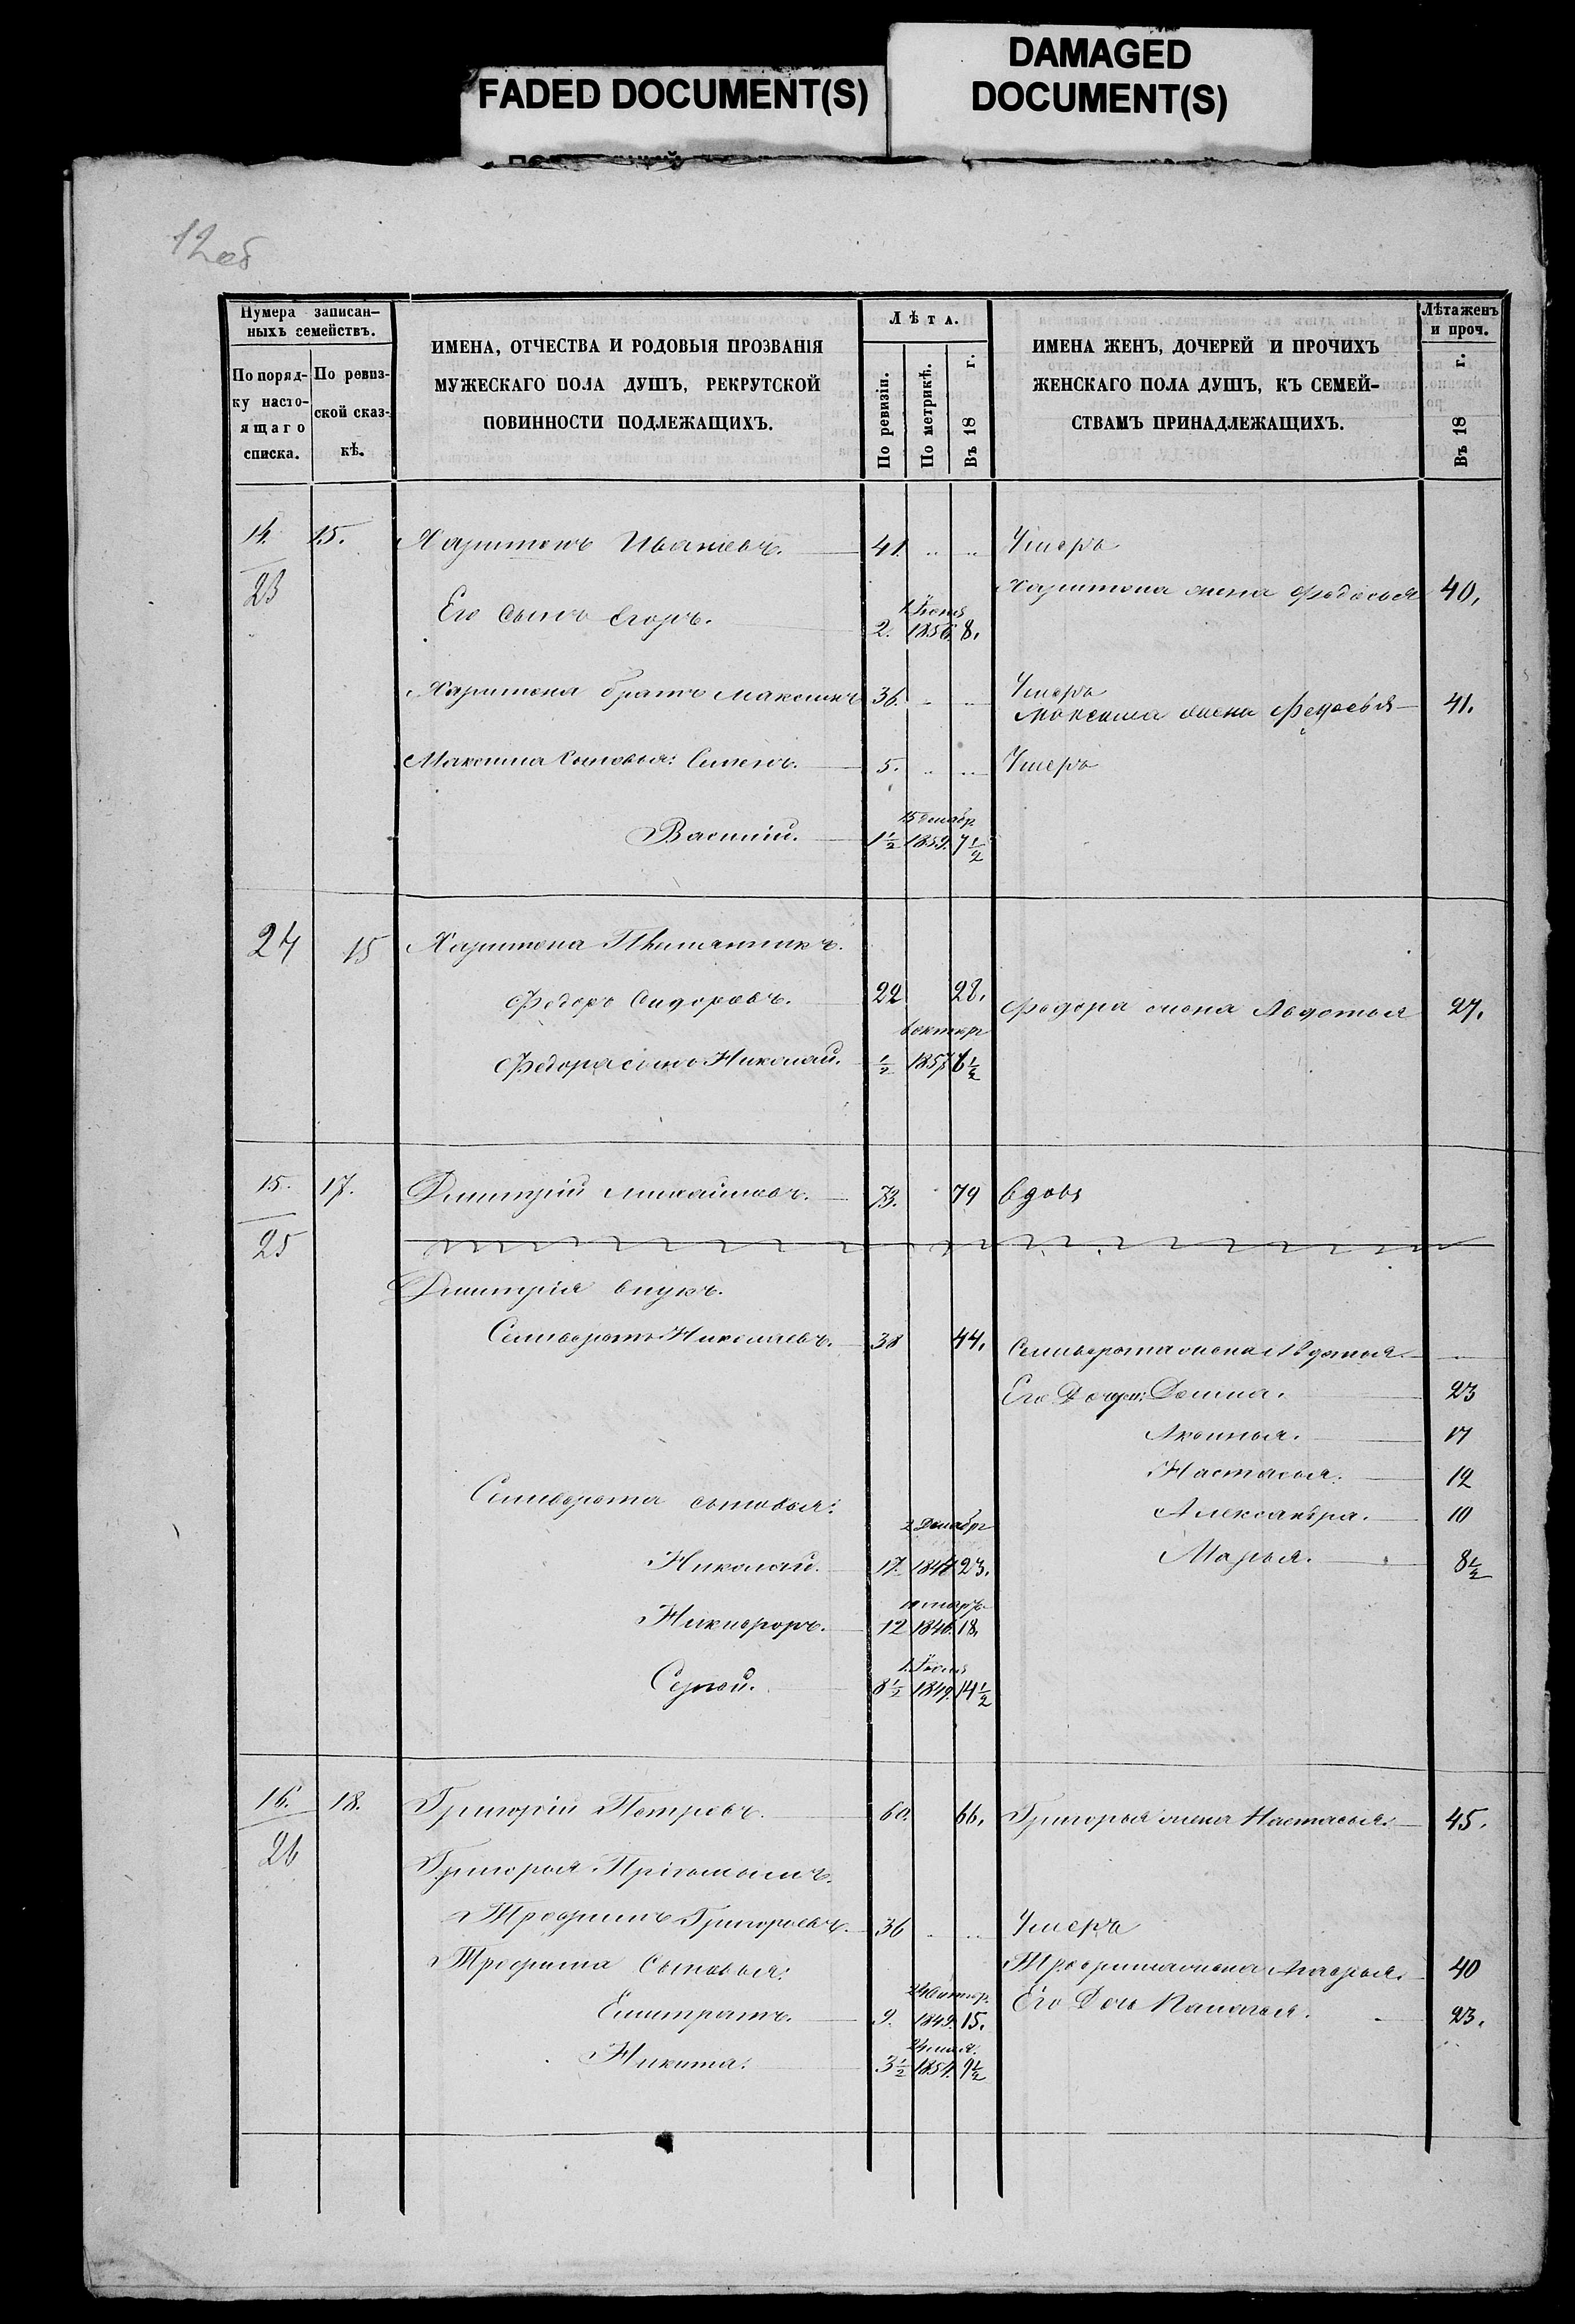 FADED DOCUMENT(S)
DAMAGED
DOCUMENT(S)
12об
Нумера записан-
ныхъ семействъ.
По поряд-
ку насто-
ящаго
списка.
По ревиз-
ской сказ-
кѣ.
ИМЕНА, ОТЧЕСТВА И РОДОВЫЯ ПРОЗВАНІЯ
МУЖЕСКАГО ПОЛА ДУШЪ, РЕКРУТСКОЙ
ПОВИННОСТИ ПОДЛЕЖАЩИХЪ.
Лѣта.
По ревизіи.
По метрикѣ.
Въ 18 г.
ИМЕНА ЖЕНЪ, ДОЧЕРЕЙ И ПРОЧИХЪ
ЖЕНСКАГО ПОЛА ДУШЪ, КЪ СЕМЕЙ-
СТВАМЪ ПРИНАДЛЕЖАЩИХЪ.
Лѣта женъ
и проч.
Въ 18 г.
14. 15. Харитонъ Ивановъ. 41. Умеръ
23 Харитона жена Федосья 40.
1 Іюня
Его сынъ Егоръ. 2. 1856. 8.
Харитона братъ Максимъ 36. Умеръ
Максима жена Федосья 41.
Максима сыновья: Семенъ. 5. Умеръ
15 декабр
Василій. 1½ 1859. 7½
24 15 Харитона Племянникъ.
Федоръ Сидоровъ. 22 28. Федора жена Авдотья 27.
Федора сынъ Николай. ½ 1857 6½
15. 17. Дмитрій Михайловъ. 73. 79 вдовъ
25
Дмитрія внукъ.
Селиверстъ Николаевъ. 38 44. Селиверста жена Авдотья.
Его Дочери: Домна. 23
Аксинья. 17
Настасья. 12
Селиверста сыновья: Александра. 10
2 Декабр
Николай. 17. 1841 23. Марья. 8½
Никифоръ. 12 1846. 18.
Сергей. 8½ 1849. 14½
16. 18. Григорій Петровъ. 60. 66. Григорья жена Настасья. 45.
26 Григорья Пріемышъ.
Трофимъ Григорьевъ. 36 Умеръ
Трофима сыновья: Трофима жена 40
Его Дочь Палагея. 23.
Евстратъ. 9. 1849. 15.
24 мая.
Никита. 3½ 1854. 9½